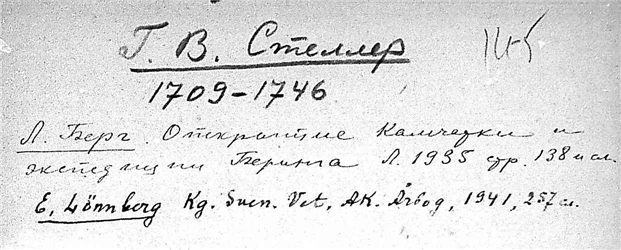 Г. В. Стеллер
1709-1746
Л. Берг. Открытие Камчатки и
экспедиции Беринга Л. 1935 стр. 138 и сл.
E. Lönnberg Kg. Sven. Vet. AK. Årbog, 1941, 257 сл.